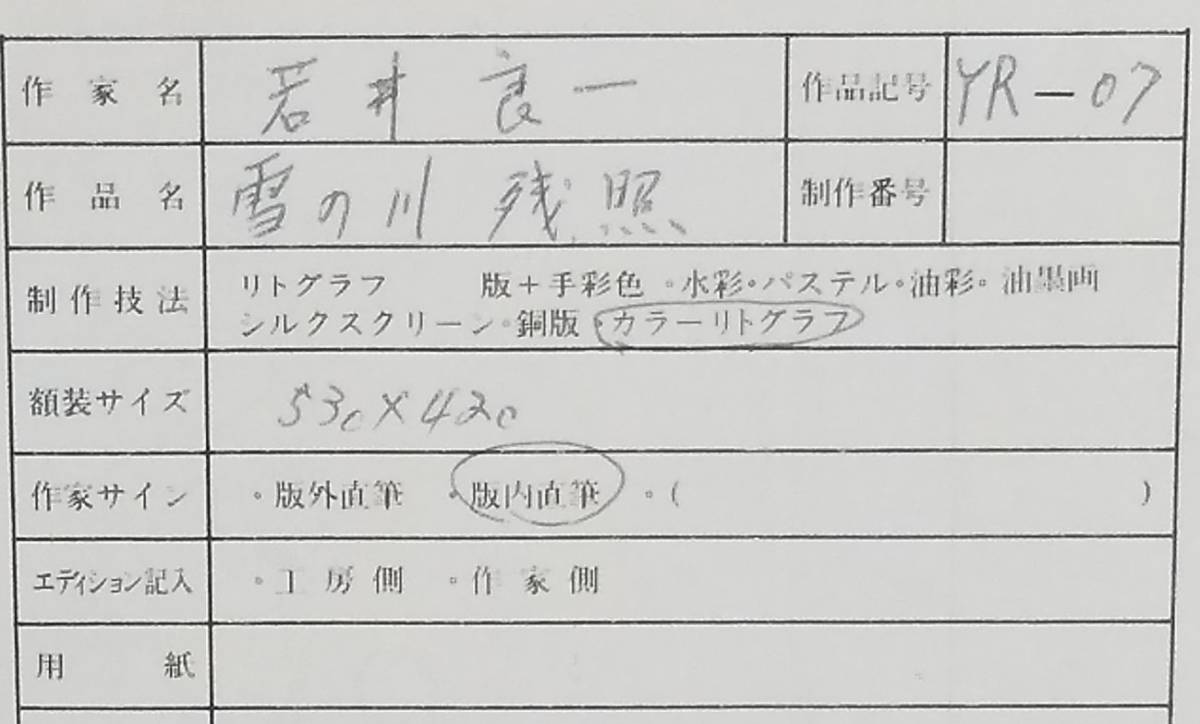 作家名 若井 良一 作品記号 YR-07
作品名 雪の川 残照 制作番号
制作技法 リトグラフ 版+手彩色・水彩・パステル・油彩・油墨画
シルクスクリーン・銅版・カラーリトグラフ
額装サイズ 530×420
作家サイン ・版外直筆 ・版内直筆 ・( )
エディション記入 ・工房側 ・作家側
用紙